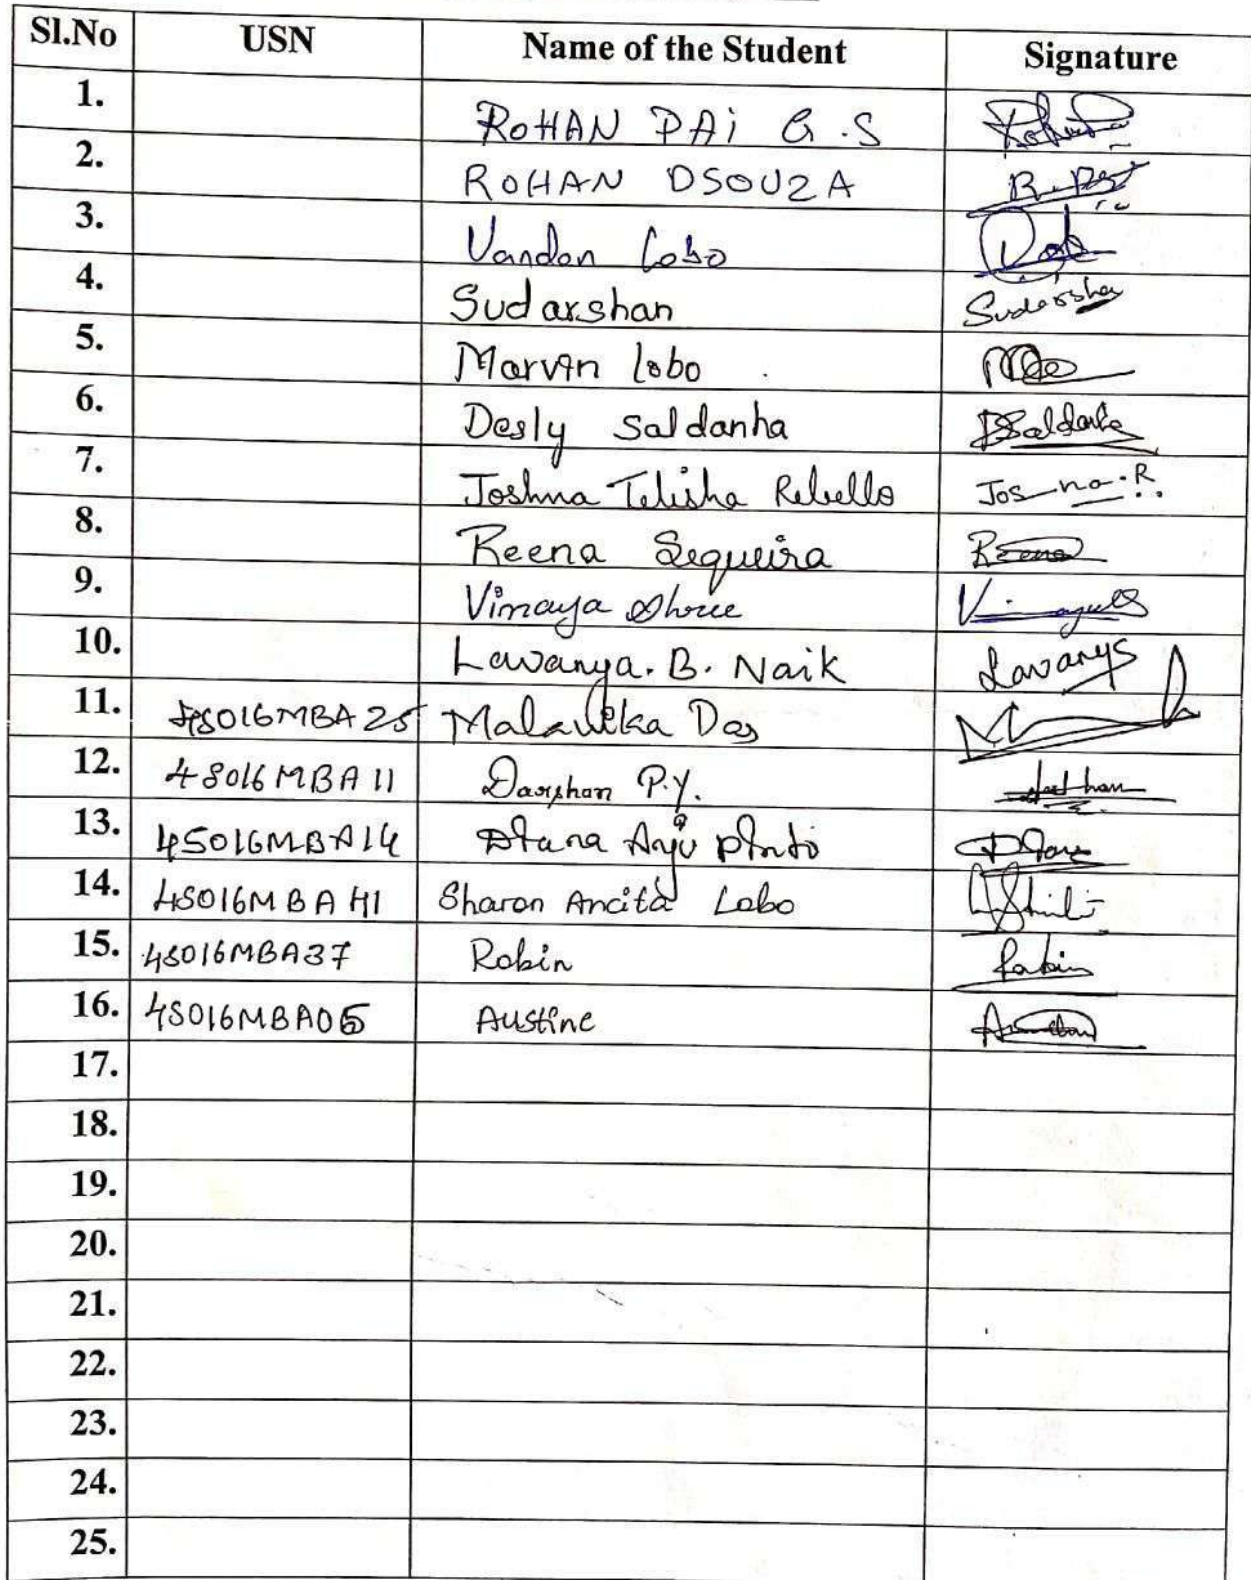 Sl.No USN Name of the Student Signature
1. ROHAN PAi G.S
2. ROHAN DSOUZA
3. Vandan Lobo
4. Sudarshan Sudarsha
5. Marvin lobo
6. Desly Saldanha DSaldanha
7. Joshna Telisha Rebello Jos na.R
8. Reena Sequeira Reena
9. Vinaya Shree
10. Lavanya. B. Naik Lavanya
11. 4SO16MBA25 Malavika Das
12. 4SO16MBA11 Darshan P.Y.
13. 4SO16MBA14 Diana Anju Pinto
14. 4SO16MBA41 Sharon Ancita Lobo
15. 4SO16MBA37 Robin Robin
16. 4SO16MBA05 Austine
17.
18.
19.
20.
21.
22.
23.
24.
25.